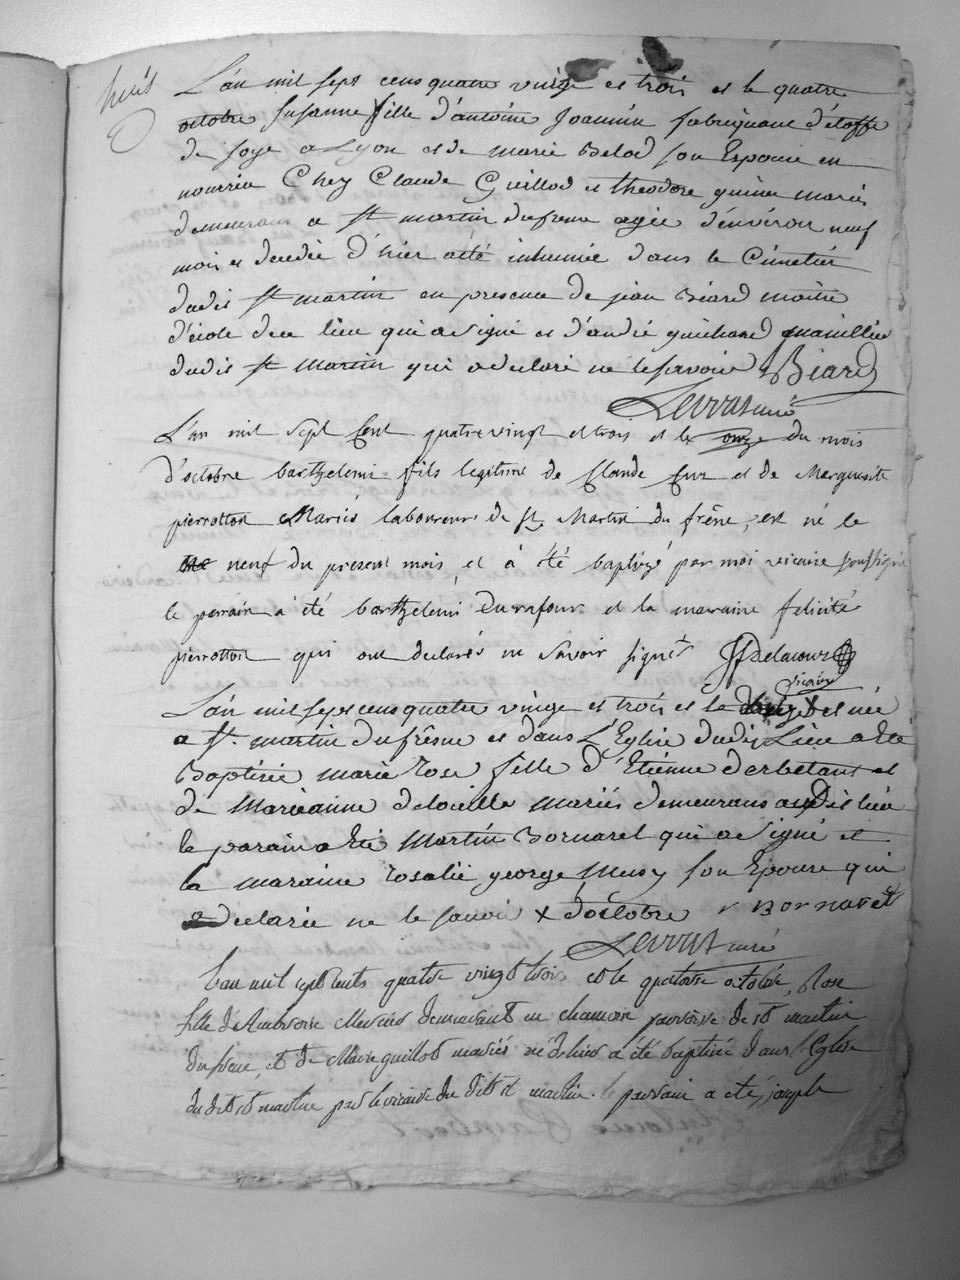 huit
L'an mil sept cens quatre vingt et trois et le quatre
octobre susanne fille d'antoine Joannin fabriquant d'étoffe
de soye a Lyon et de marie Belod son Epouse en
nourrice Chez Claude Guillod et theodore mariés
demeurans a st martin dufrene agée d'environ neuf
mois et decedée d'hier a été inhumée dans le Cimetier
dudit st martin en presence de jean Béard maitre
d'école de ce lieu qui a signé et d'andré guichard
dudit st martin qui a declaré ne le savoir Biard
Levrat curé
L'an mil sept Cent quatrevingt et trois et le onze du mois
d'octobre barthelemi fils legitime de Claude Cur et de Marguerite
pierrotton Mariés laboureurs de st Martin du frêne, est né le
neuf du present mois, et á été baptizé par moi vicaire soussigné
le parrain á été barthelemi Durafour et la maraine felicité
pierrotton qui ont declarés ne savoir signer Delacour
vicaire
L'an mil sept cens quatre vingt et trois et le x est née
a st martin dufrêne et dans L'Eglise dudit Lieu a été
Baptisée marie rose fille d'Etienne derbetant et
de marieanne deloielle mariés demeurans audit lieu
le parain a été martin Bornarel qui a signé et
la maraine rosalie george musy son Epouse qui
a declarée ne le savoir x d'octobre Bornaret
Levrat curé
L'an mil sept cents quatre vingt trois et le quatorse octobre, Rose
fille d'Ambroise demeurant en chamoin parroisse de st martin
du frene, et de Marie guillot mariés né de hier a été baptisée dans l'Eglise
du dit st martin par le vicaire du dit st martin. le parrain a été, joseph